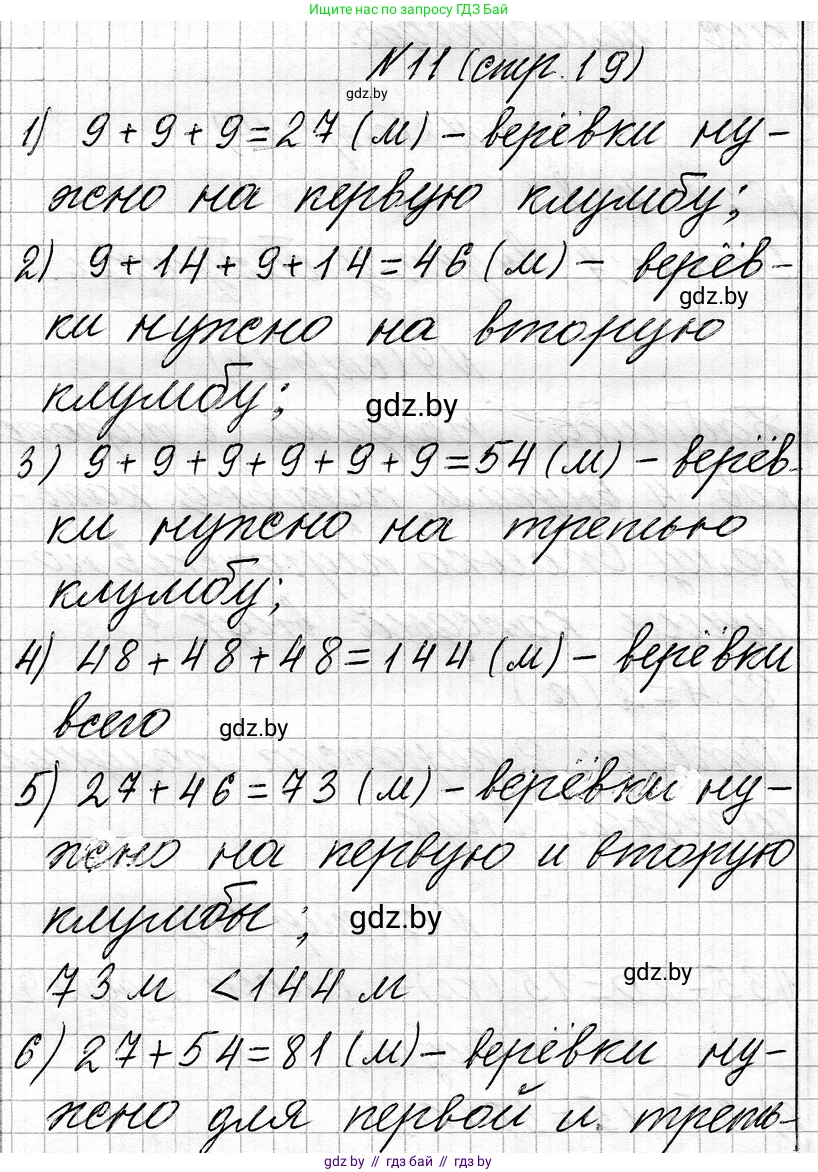 Ищите нас по запросу ГДЗ Бай
№11 (стр. 19)
gdz.by
1) 9+9+9=27 (м) – верёвки ну-
жно на первую клумбу;
2) 9+14+9+14=46 (м) – верёв-
gdz.by
ки нужно на вторую
клумбу;
gdz.by
3) 9+9+9+9+9+9=54 (м) – верёв-
ки нужно на третью
клумбу;
4) 48+48+48=144 (м) – верёвки
всего
gdz.by
5) 27+46=73 (м) – верёвки ну-
жно на первую и вторую
клумбы;
gdz.by
73 м < 144 м
gdz.by
6) 27+54=81 (м) – верёвки ну-
жно для первой и треть-
gdz.by // гдз бай // gdz.by